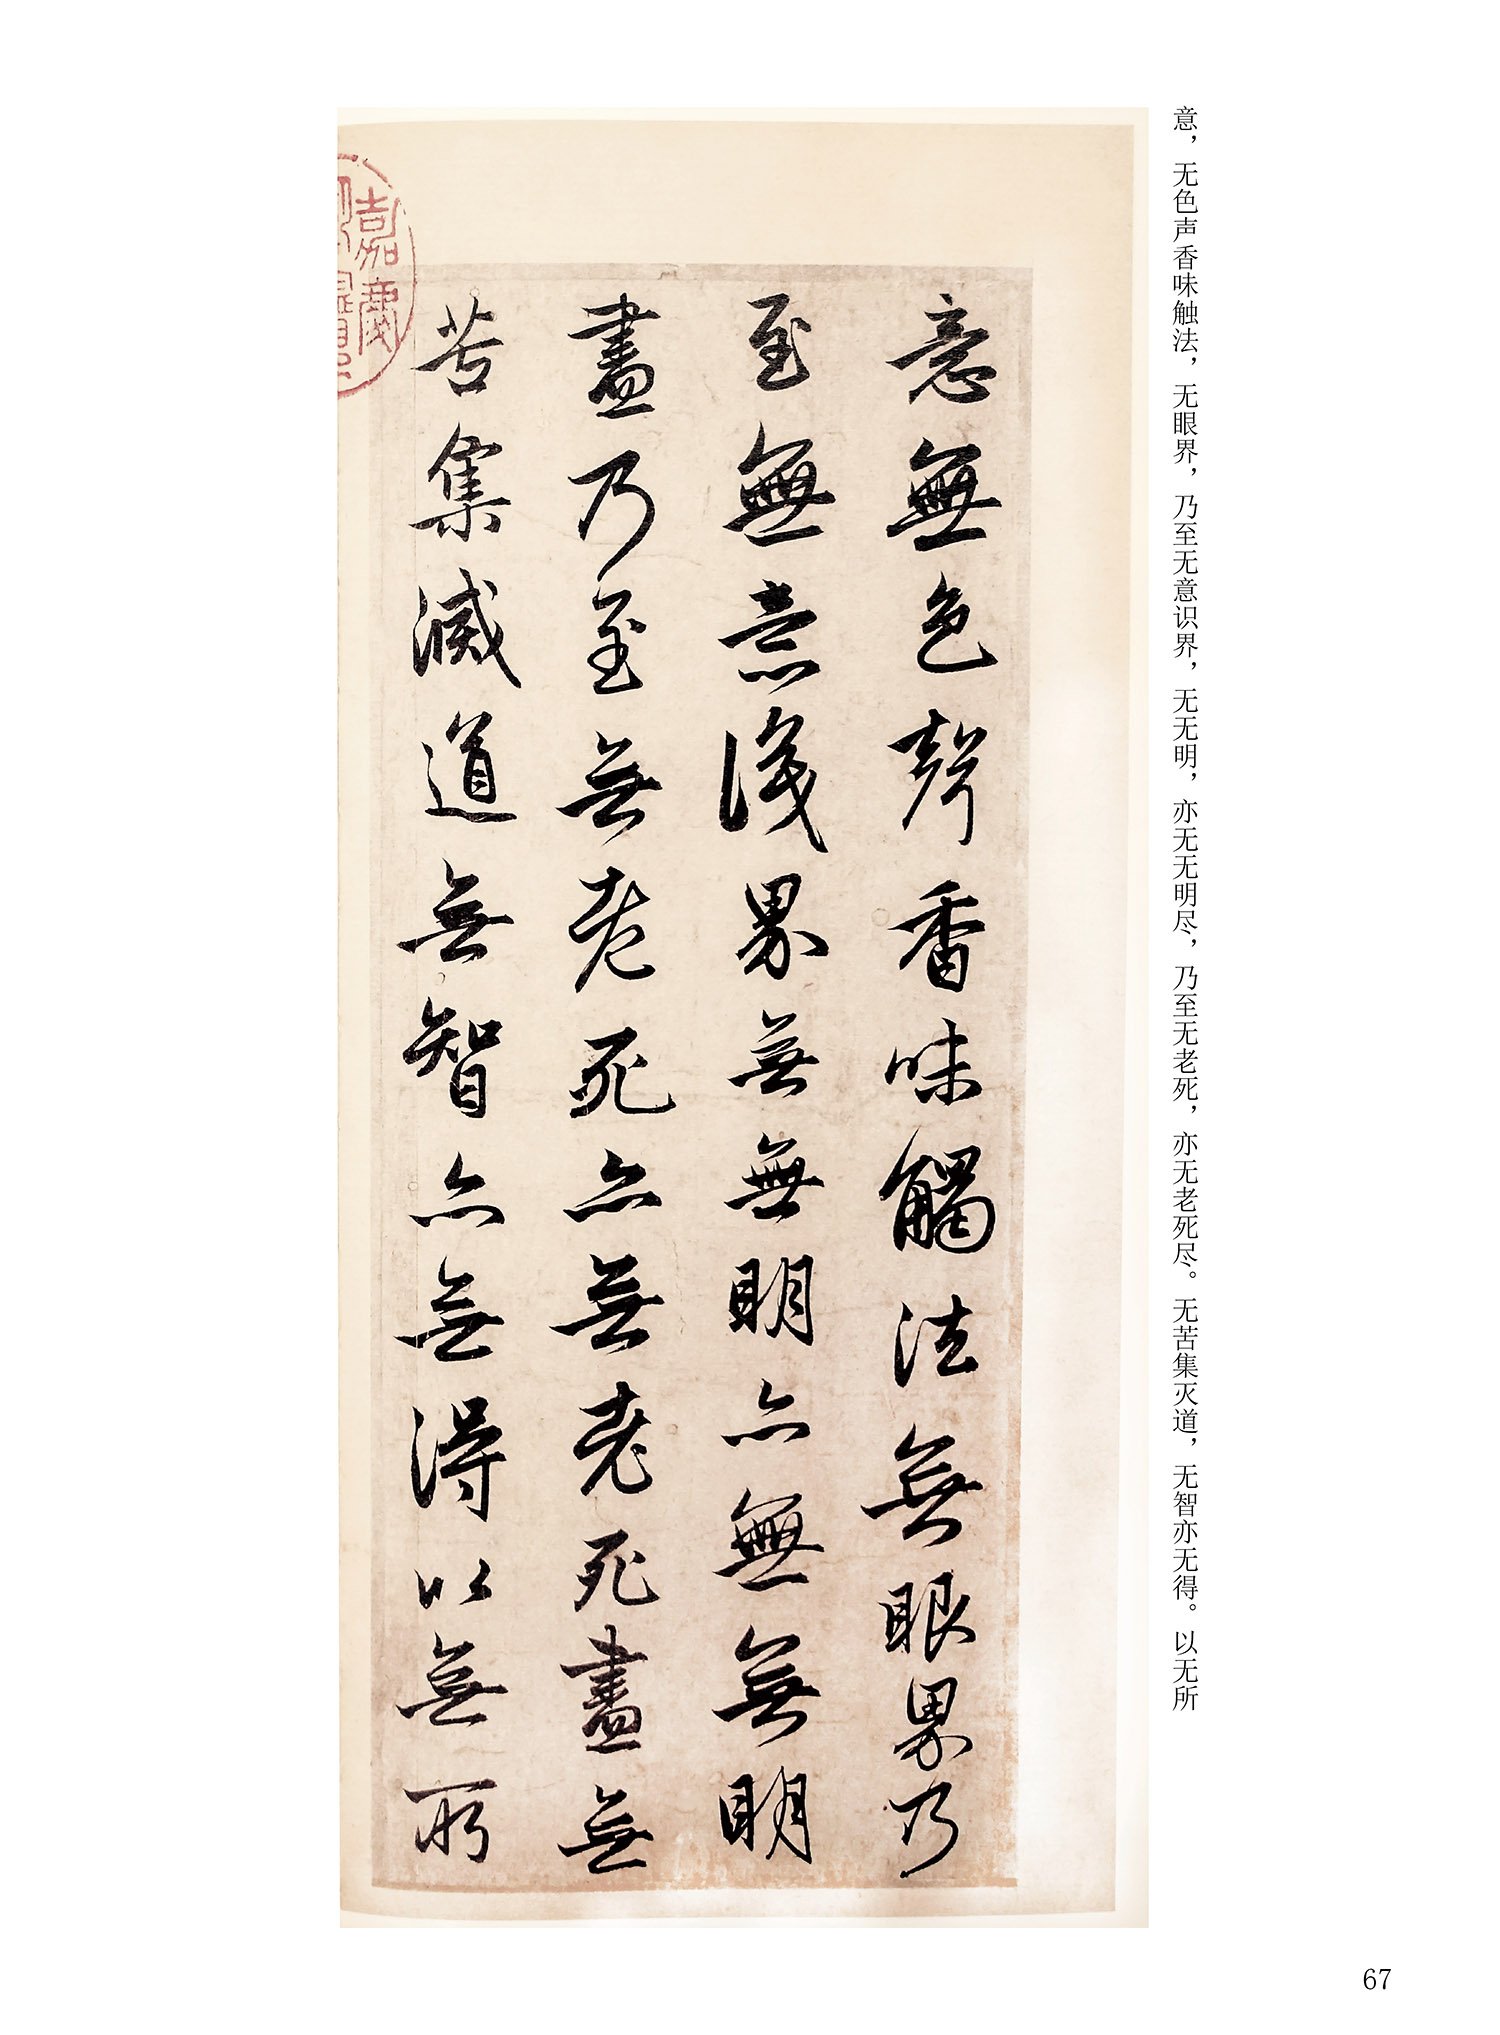 意，无色声香味触法，无眼界，乃至无意识界，无无明，亦无无明尽，乃至无老死，亦无老死尽。无苦集灭道，无智亦无得。以无所
意無色聲香味觸法無眼界乃
至無意識界無無明亦無無明
盡乃至無老死亦無老死盡無
苦集滅道無智亦無得以無所
嘉慶
67